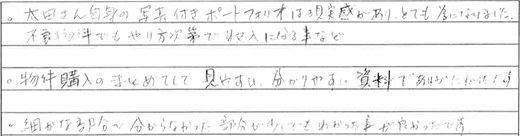 。太田さん自身の写真付きポートフォリオは現実感があり、とても為になりました。
不要物件でもやり方次第で収入になる事など
。物件購入のまとめてして見やすい、分かりやすい資料でありがたかったです
・細かな部分で分からなかった部分が少しでもわかった事が良かったです